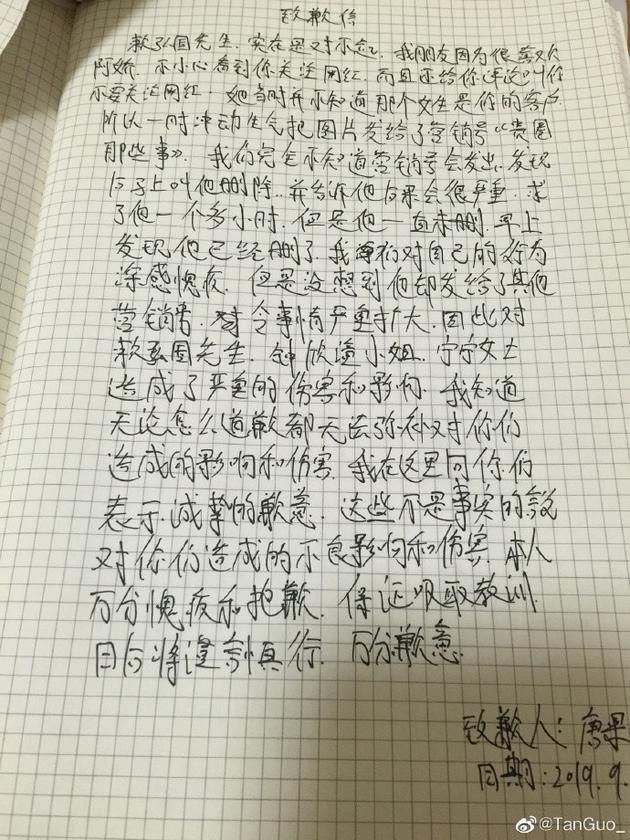 致歉信
赖弘国先生.实在是对不起.我朋友因为很喜欢
阿娇.不小心看到你关注网红.而且还给你评论叫你
不要关注网红.她当时并不知道那个女生是你的客户.
所以一时冲动生气把图片发给了营销号《贵圈
那些事》.我们完全不知道营销号会发出.发现
后马上叫他删除..并告诉他后果会很严重.求
了他一个多小时.但是他一直未删.早上
发现他已经删了.我们对自己的行为
深感愧疚.但是没想到他却发给了其他
营销号.令事情严重扩大.因此对
赖弘国先生.钟欣潼小姐.宁宁女士
造成了严重的伤害和影响.我知道
无论怎么道歉都无法弥补对你们
造成的影响和伤害.我在这里向你们
表示诚挚的歉意.这些不是事实的言论
对你们造成的不良影响和伤害.本人
万分愧疚和抱歉.保证吸取教训.
日后将谨言慎行.万分歉意.
致歉人:唐果
日期:2019.9.
@TanGuo_